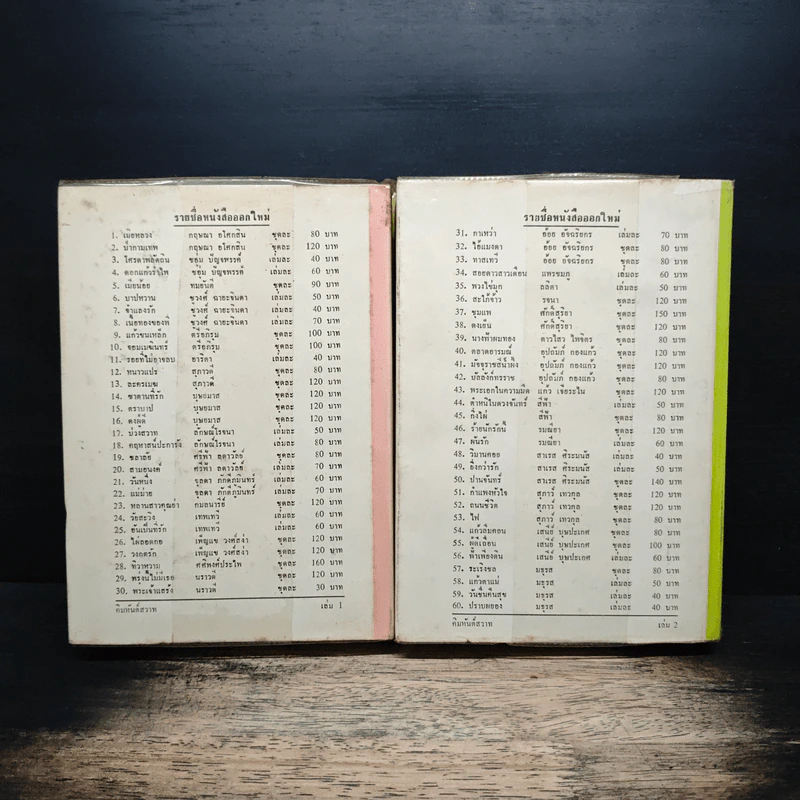 รายชื่อหนังสือออกใหม่
1. เมียหลวง กฤษณา อโศกสิน ชุดละ 80 บาท
2. ป่ากามเทพ กฤษณา อโศกสิน ชุดละ 120 บาท
3. ใครดาพลัดถิ่น ชอุ่ม ปัญจพรรค์ เล่มละ 40 บาท
4. ดอกแก้วรำไพ ชอุ่ม ปัญจพรรค์ เล่มละ 60 บาท
5. เมียน้อย ทมยันตี ชุดละ 90 บาท
6. บาปหวาน ชูวงศ์ ฉายะจินดา เล่มละ 50 บาท
7. จำเลยรัก ชูวงศ์ ฉายะจินดา เล่มละ 70 บาท
8. เนื้อทองของพี่ ชูวงศ์ ฉายะจินดา เล่มละ 40 บาท
9. แก้วขนเหล็ก ตรีอภิรุม ชุดละ 100 บาท
10. จอมเมฆินทร์ ตรีอภิรุม ชุดละ 100 บาท
11. รอยที่ไม่อาจลบ อาริตา เล่มละ 40 บาท
12. หนาวแปร สุภาวดี ชุดละ 80 บาท
13. ละครเมฆ สุภาวดี ชุดละ 120 บาท
14. ซาตานที่รัก บุษยมาส ชุดละ 120 บาท
15. ตราบาป บุษยมาส ชุดละ 120 บาท
16. ดงผู้ดี บุษยมาส ชุดละ 120 บาท
17. บ่วงสวาท ลักษณ์โรจนา เล่มละ 50 บาท
18. คฤหาสน์ปะการัง ลักษณ์โรจนา ชุดละ 80 บาท
19. ชลาลัย ศรีฟ้า ลดาวัลย์ ชุดละ 80 บาท
20. สามอนงค์ ศรีฟ้า ลดาวัลย์ เล่มละ 70 บาท
21. วันหนึ่ง จุลดา ภักดีภูมินทร์ เล่มละ 60 บาท
22. แม่ม่าย จุลดา ภักดีภูมินทร์ เล่มละ 70 บาท
23. หลานสาวคุณย่า กมลนารีย์ ชุดละ 120 บาท
24. วัยสะวิง เทพเทวี เล่มละ 60 บาท
25. อันเป็นที่รัก เทพเทวี เล่มละ 60 บาท
26. ไผ่ลอดกอ เพ็ญแข วงศ์สง่า ชุดละ 120 บาท
27. วงกตรัก เพ็ญแข วงศ์สง่า ชุดละ 120 บาท
28. ทิวาหวาม ศศิพงศ์ประไพ ชุดละ 160 บาท
29. พรุ่งนี้ไม่มีเธอ นราวดี ชุดละ 120 บาท
30. พระเจ้าแสรง นราวดี ชุดละ 30 บาท
คิมหันต์สวาท เล่ม 1
รายชื่อหนังสือออกใหม่
31. กาเหว่า อ้อย อัจฉริยกร เล่มละ 70 บาท
32. ไอ้แมงดา อ้อย อัจฉริยกร ชุดละ 80 บาท
33. ทาสเทวี อ้อย อัจฉริยกร ชุดละ 80 บาท
34. สอยดาวสาวเดือน แพรชมภู เล่มละ 60 บาท
35. พวงไข่มุก ลลิตา เล่มละ 50 บาท
36. สะใภ้จ้าว รจนา ชุดละ 120 บาท
37. ชุมแพ ศักดิ์สุริยา ชุดละ 150 บาท
38. ดงเย็น ศักดิ์สุริยา ชุดละ 120 บาท
39. นางทำผมทอง ดาวไสว ไพจิตร ชุดละ 80 บาท
40. ตลาดอารมณ์ อุปถัมภ์ กองแก้ว ชุดละ 120 บาท
41. มัจจุราชสีน้ำผึ้ง อุปถัมภ์ กองแก้ว ชุดละ 120 บาท
42. บัลลังก์ทรราช อุปถัมภ์ กองแก้ว ชุดละ 80 บาท
43. พระเอกในความมืด แก้ว เจียระไน เล่มละ 40 บาท
44. ตำหนิในดวงจันทร์ สีฟ้า เล่มละ 50 บาท
45. กิ่งไผ่ สีฟ้า ชุดละ 80 บาท
46. ร้ายนักรักนี้ รมณียา ชุดละ 120 บาท
47. พันรัก รมณียา เล่มละ 60 บาท
48. วิมานคอย สาเรส ศิระมนัส เล่มละ 40 บาท
49. ยิ่งกว่ารัก สาเรส ศิระมนัส เล่มละ 50 บาท
50. ปานจันทร์ สาเรส ศิระมนัส ชุดละ 140 บาท
51. กำแพงหัวใจ สุภาว์ เทวกุล ชุดละ 120 บาท
52. ถนนชีวิต สุภาว์ เทวกุล ชุดละ 120 บาท
53. ไฟ สุภาว์ เทวกุล ชุดละ 80 บาท
54. แก้วลืมคอน เสนีย์ บุษปะเกศ เล่มละ 80 บาท
55. ผู้ดีเถื่อน เสนีย์ บุษปะเกศ ชุดละ 100 บาท
56. ฟ้าเพียงดิน เสนีย์ บุษปะเกศ เล่มละ 60 บาท
57. ระเริงชล มธุรส ชุดละ 80 บาท
58. แก้วตาแม่ มธุรส เล่มละ 50 บาท
59. วันชื่นคืนสุข มธุรส เล่มละ 40 บาท
60. ปราบพยอง มธุรส เล่มละ 40 บาท
คิมหันต์สวาท เล่ม 2